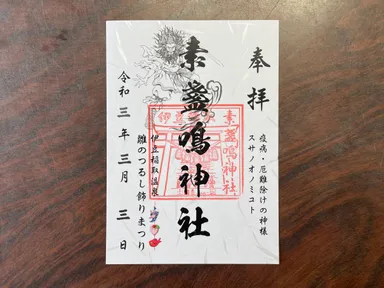 奉拝
疫病・厄難除けの神様
スサノオノミコト
素盞嗚神社
素盞嗚神社
伊豆稲取温泉
雛のつるし飾りまつり
令和三年三月三日